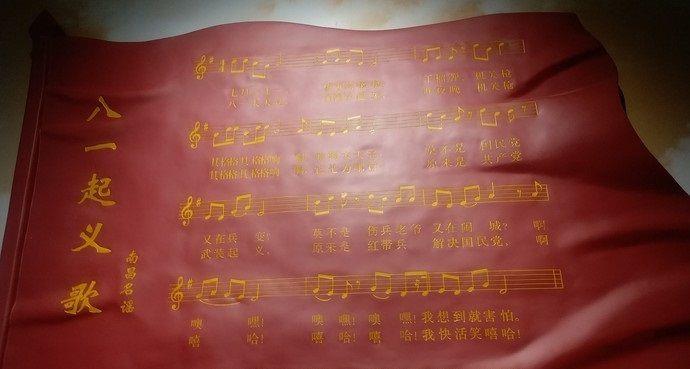 八一起义歌
南昌名谣
机关枪
机关枪
其格格其格格响
莫不是 国民党
其格格其格格响
原来是 共产党
又在兵 变! 莫不是 伤兵老爷 又在闹 城? 啊
武装起 义, 原来是 红带兵 解决国民党, 啊
噢 嘿! 噢 嘿! 噢 嘿! 我想到就害怕。
嘻 哈! 嘻 哈! 嘻 哈! 我快活笑嘻哈!